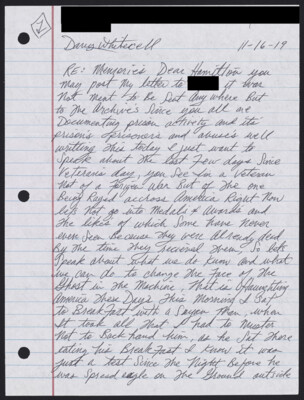 11-16-19
RE: Memories Dear Hamilton you
may post my letter to it was
not meant to be sent any where But
to The Archives Since you all are
Documenting prison activity and its
prisons prisoners and abuses well
writting this today I just want to
speak about the last Few days Since
Veterens day, you see I'm a Veteren
Not of a Foriegn War But of The one
Being Raged accross America Right Now
lets Not go into Medals & Awards and
The likes of which Some have Never
even seen because They were already dead
By the time They received Them. So lets
Speak about what we do know and what
we can do to change the Face of the
Ghost in the Machine, That is Haunting
America These Days. This Morning I Sat
to BreakFast with a man, when
it took all that I had to Muster
Not to Back hand him, as he Sat There
eating his BreakFast I know it was
just a test Since the Night Before he
was Spread eagle on The Ground outside